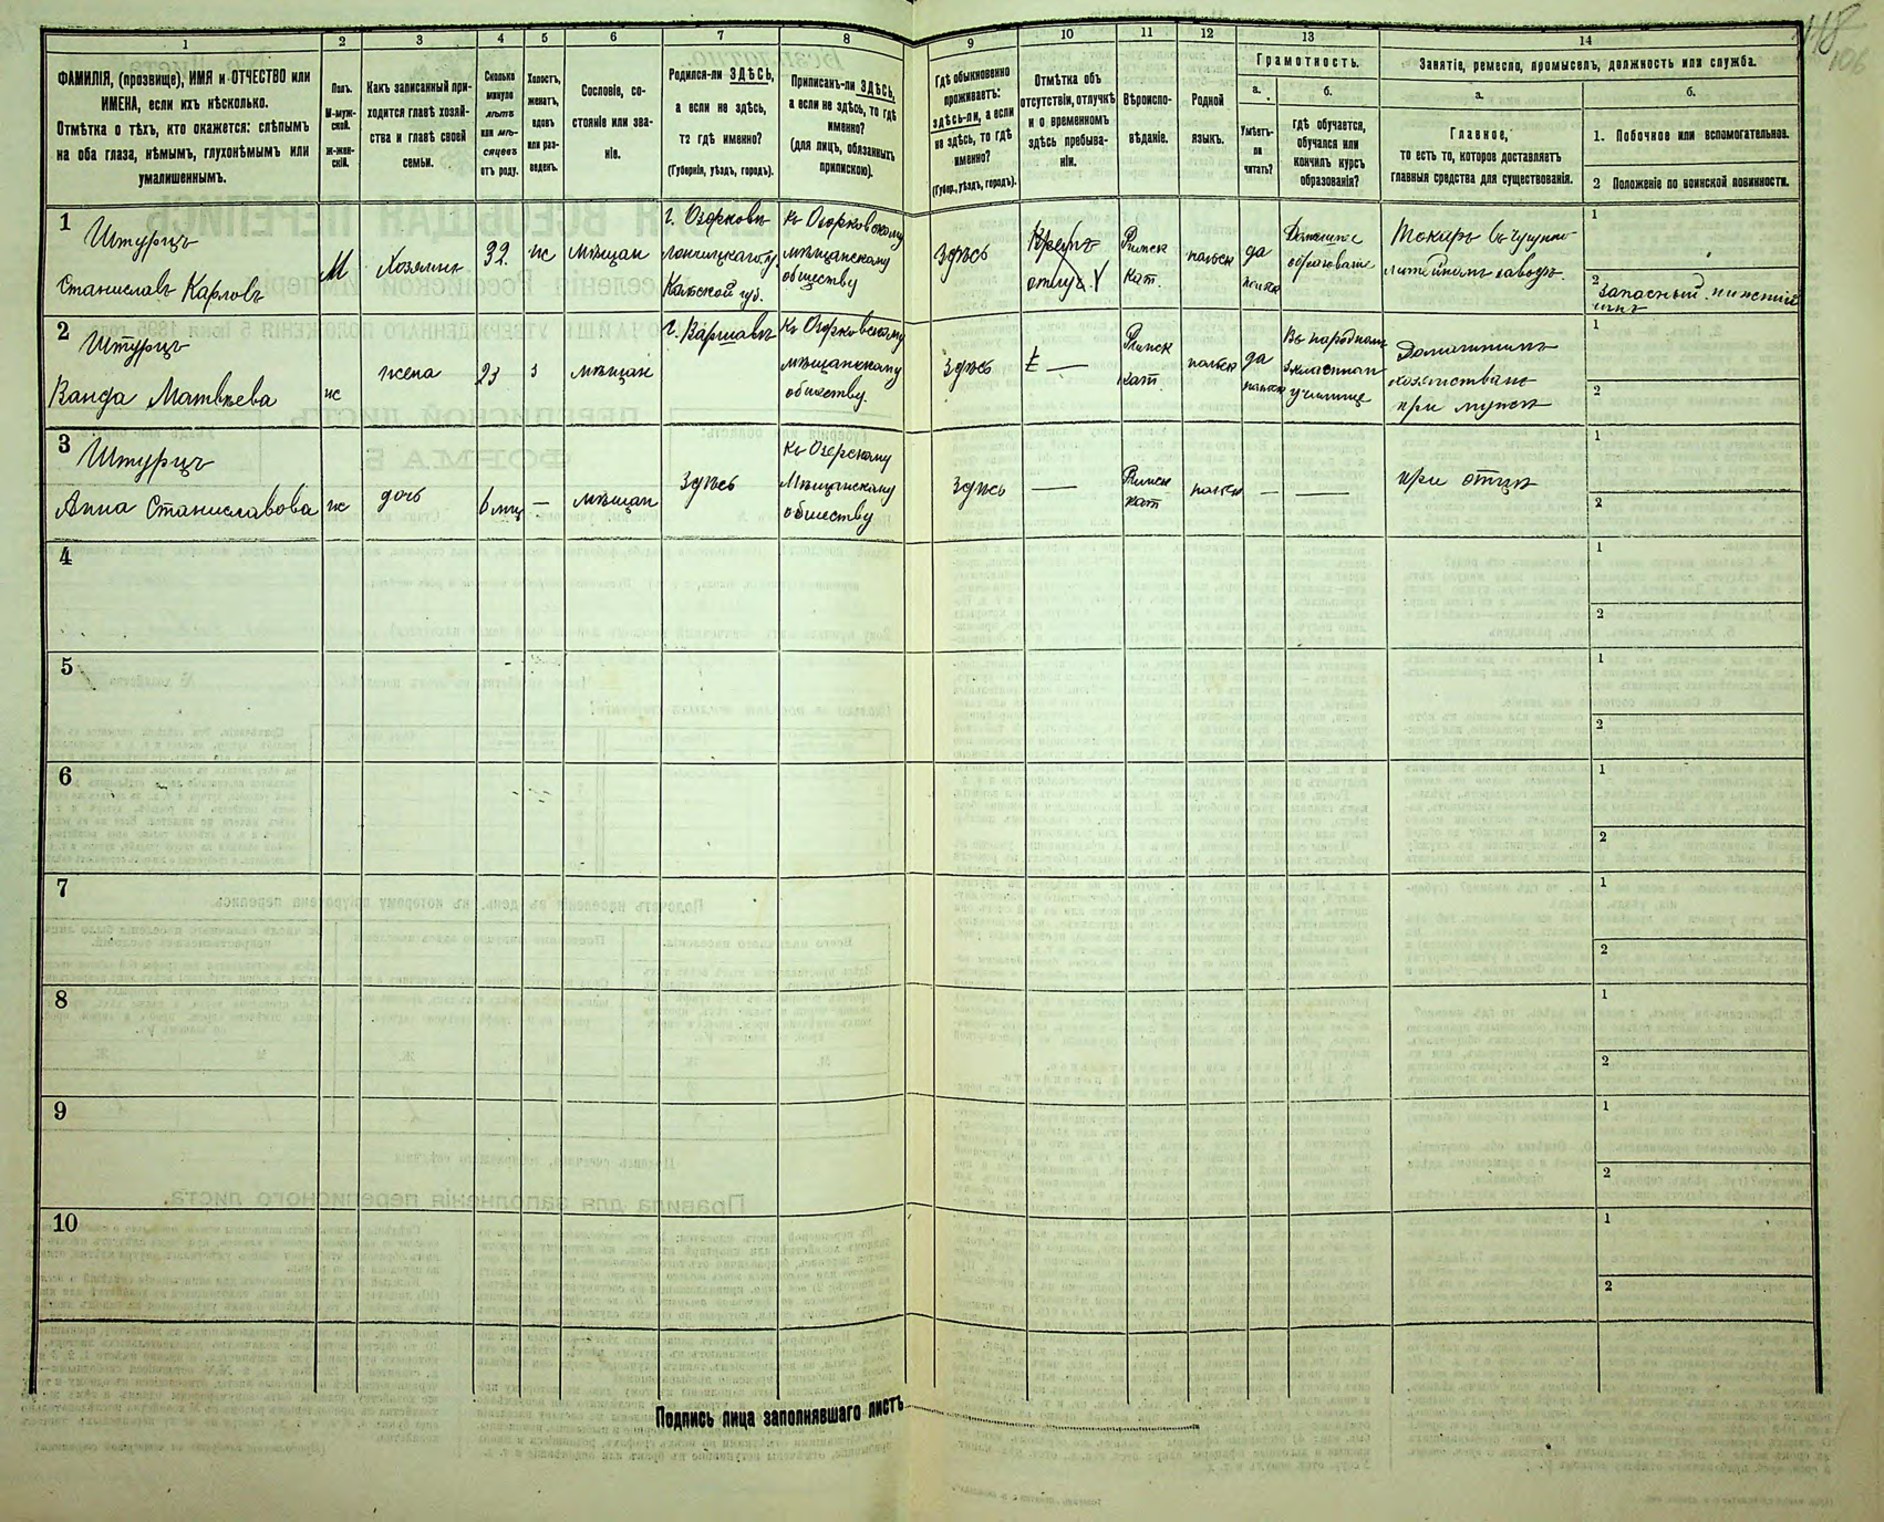 118
106
1
2
3
4
5
6
7
8
9
10
11
12
13
14
ФАМИЛІЯ, (прозвище), ИМЯ и ОТЧЕСТВО или
ИМЕНА, если ихъ нѣсколько.
Отмѣтка о тѣхъ, кто окажется: слѣпымъ
на оба глаза, нѣмымъ, глухонѣмымъ или
умалишеннымъ.
Полъ.
М-муж-
ской.
Ж-жен-
скій.
Какъ записанный при-
ходится главѣ хозяй-
ства и главѣ своей
семьи.
Сколько
минуло
лѣтъ
или мѣ-
сяцевъ
отъ роду.
Холостъ,
женатъ,
вдовъ
или раз-
веденъ.
Сословіе, со-
стояніе или зва-
ніе.
Родился-ли ЗДѢСЬ,
а если не здѣсь,
то гдѣ именно?
(Губернія, уѣздъ, городъ).
Приписанъ-ли ЗДѢСЬ,
а если не здѣсь, то гдѣ
именно?
(для лицъ, обязанныхъ
припискою).
Гдѣ обыкновенно
проживаетъ:
здѣсь-ли, а если
не здѣсь, то гдѣ
именно?
(Губер., уѣздъ, городъ).
Отмѣтка объ
отсутствіи, отлучкѣ
и о временномъ
здѣсь пребыва-
ніи.
Вѣроиспо-
вѣданіе.
Родной
языкъ.
Грамотность.
а.
Умѣетъ-
ли
читать?
б.
гдѣ обучается,
обучался или
кончилъ курсъ
образованія?
Занятіе, ремесло, промыселъ, должность или служба.
а.
Главное,
то есть то, которое доставляетъ
главныя средства для существованія.
б.
1. Побочное или вспомогательное.
2 Положеніе по воинской повинности.
1
Штурцъ
Станиславъ Карловъ
М
Хозяинъ
32.
ж
мѣщан
г. Озорковъ
Калиской губ.
къ Озорковскому
мѣщанскому
обществу
здѣсь
Римск
кат.
польск
да
Домашнее
образованіе
Токарь въ чугунно
литейномъ заводѣ.
1
2
Запасный нижній
чинъ
2
Штурцъ
Ванда Матвѣева
ж
жена
23
з
мѣщан
г. Варшавѣ
къ Озорковскому
мѣщанскому
обществу.
здѣсь
—
Римск
кат.
польск
да
польск
Въ народном
училище
Домашнимъ
при мужѣ
1
2
3
Штурцъ
Анна Станиславова
ж
дочь
6 мц
—
мѣщан
здѣсь
къ Озерскому
Мѣщанскому
обществу
здѣсь
—
Римск
кат
польск
—
—
при отцѣ
1
2
4
1
2
5
1
2
6
1
2
7
1
2
8
1
2
9
1
2
10
1
2
Подпись лица заполнявшаго листъ